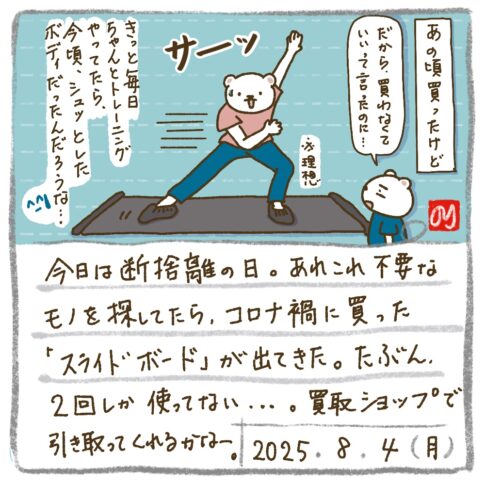 あの頃買ったけど
だから、買わなくて
いいって言ったのに…
サーッ
※理想
きっと毎日
ちゃんとトレーニング
やってたら、
今頃、シュッとした
ボディだったんだろうな…
今日は断捨離の日。あれこれ不要な
モノを探してたら、コロナ禍に買った
「スライドボード」が出てきた。たぶん、
2回しか使ってない…。買取ショップで
引き取ってくれるかなー。
2025.8.4(月)